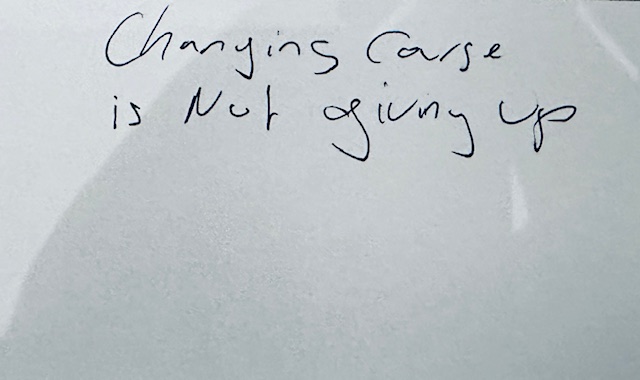 Changing Course
is Not giving up